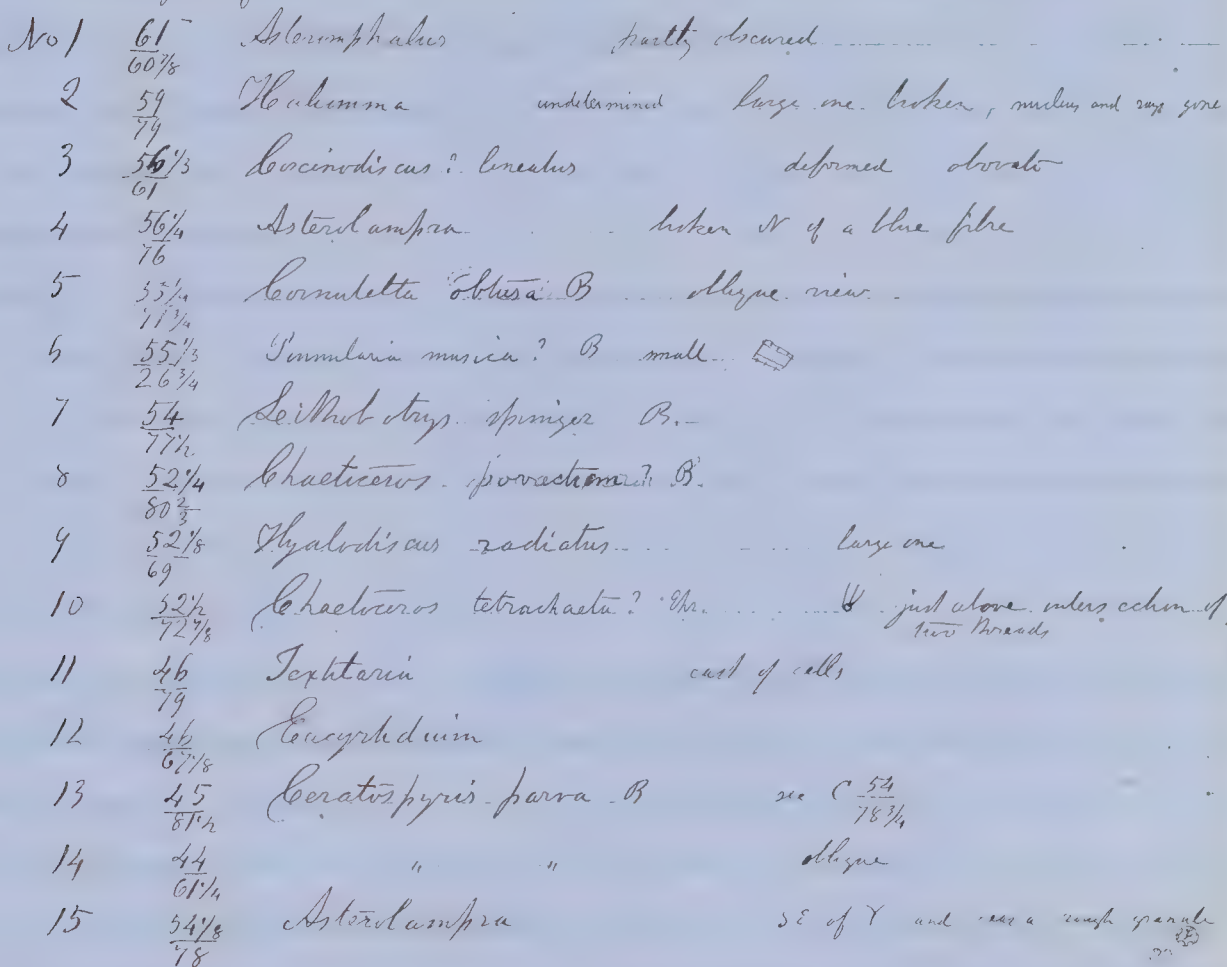 No 1 61/60 7/8 Asteromphalus partly obscured
2 59/79 Haliomma undetermined large one broken, nucleus and rays gone
3 56 1/3/61 Coscinodiscus? lineatus deformed obovate
4 56 1/4/76 Asterolampra broken N of a blue fibre
5 55 1/4/71 3/4 Cornutella obtusa B oblique view
6 55 1/3/26 3/4 Pinnularia musica? B small
7 54/77 1/2 Lithobotrys spiniger B.
8 52 1/4/80 2/3 Chaeticeros B.
9 52 1/8/69 Hyalodiscus radiatus large one
10 52 1/2/72 7/8 Chaetoceros tetrachaeta? Ehr. just above intersection of
two threads
11 46/79 Textularia cast of cells
12 46/67 1/8 Eucyrtidium
13 45/81 1/2 Ceratospyris parva B see C 54/78 3/4
14 44/61 1/4 " " oblique
15 54 1/8/78 Asterolampra SE of Y and near a rough granule